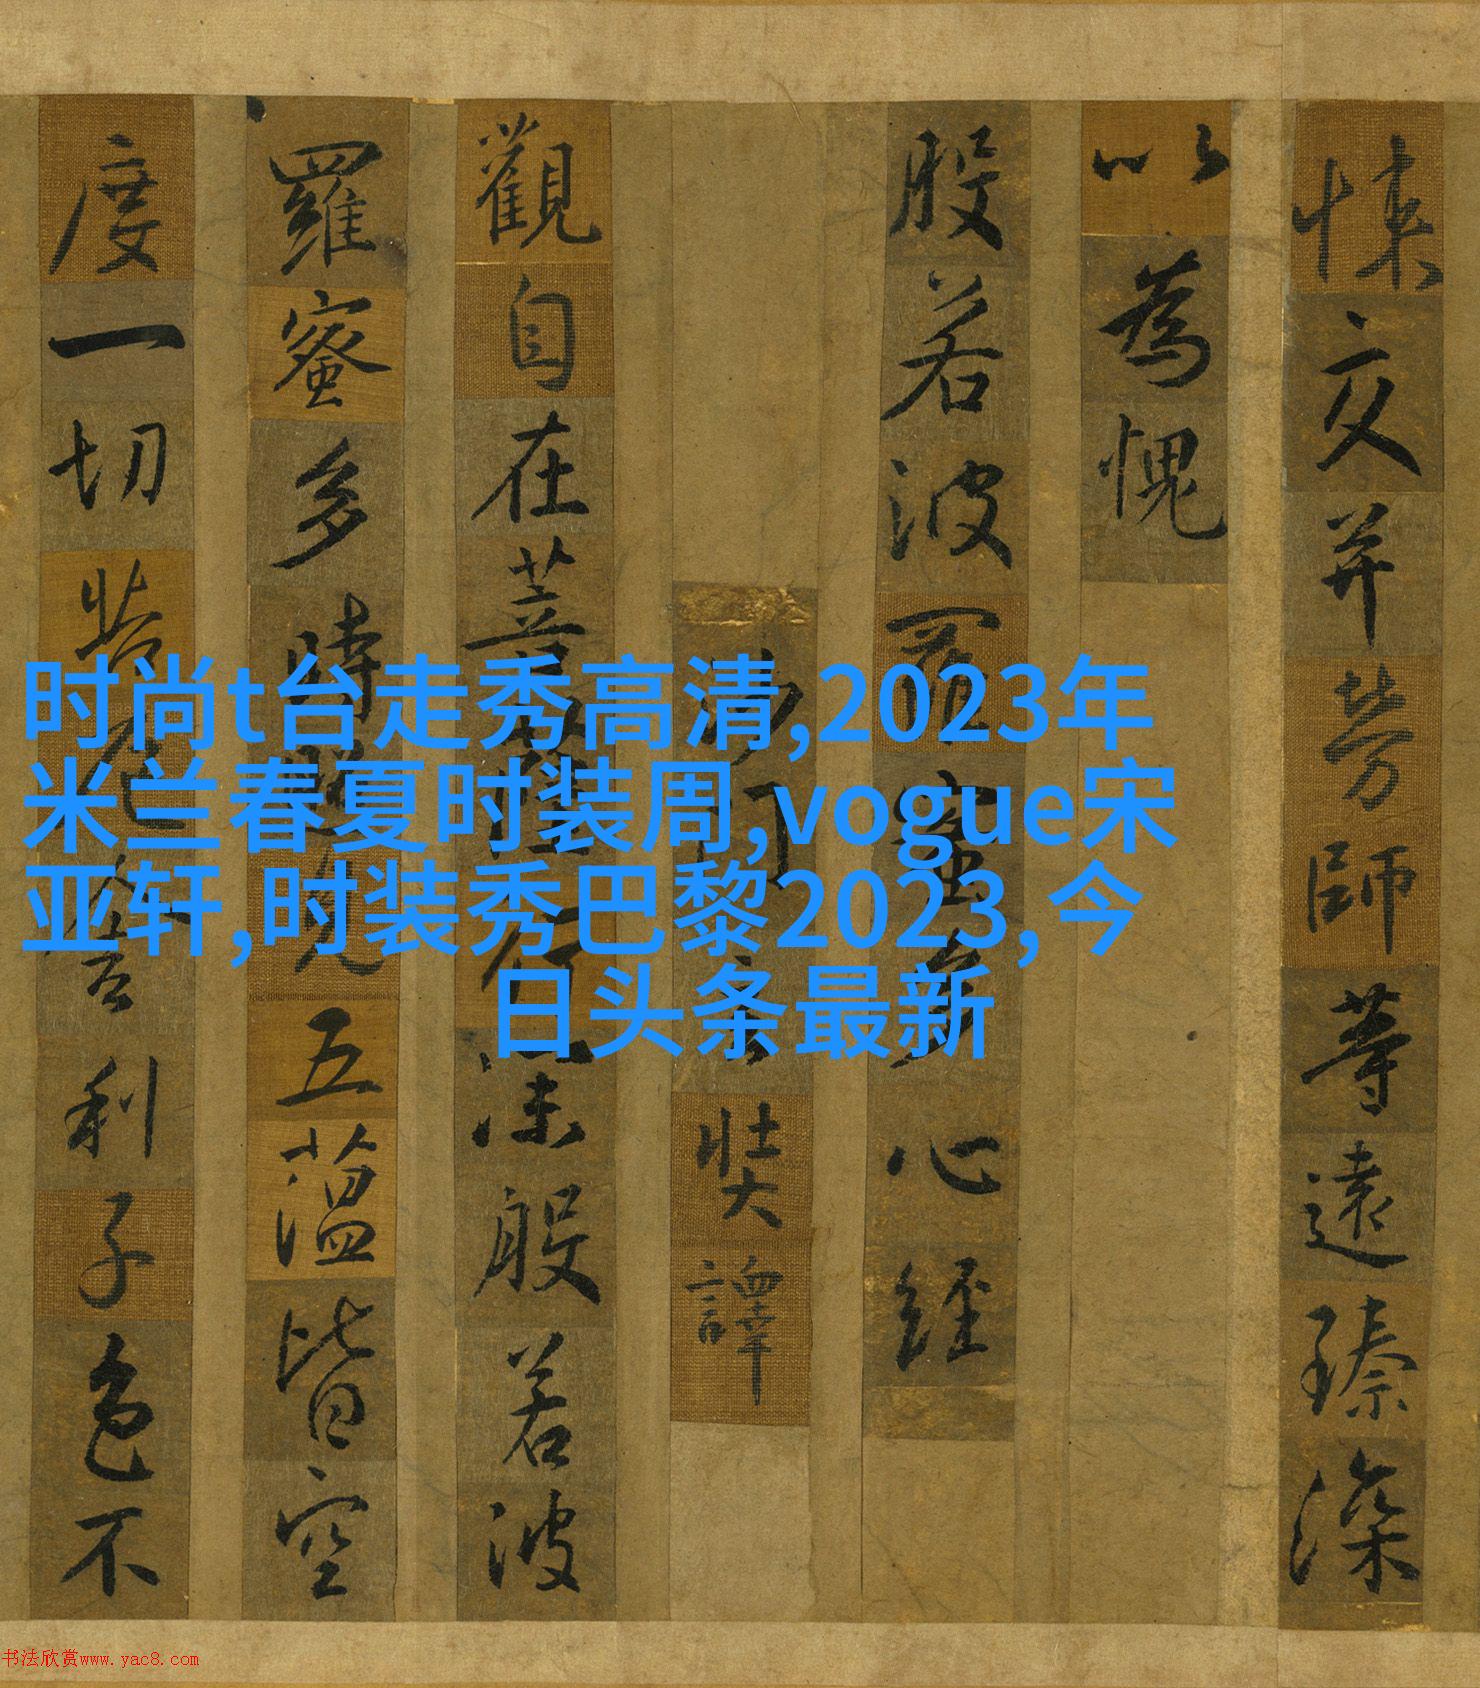 时尚t台走秀高清,2023年
米兰春夏时装周,vogue宋
亚轩,时装秀巴黎2023,今
日头条最新
悚交并勞師等遠臻深
以為愧
般若波羅蜜多心經
沙門玄奘譯
觀自在菩薩行深般若波
羅蜜多時照見五蘊皆空
度一切苦厄舍利子色不
书法欣赏www.yac8.com